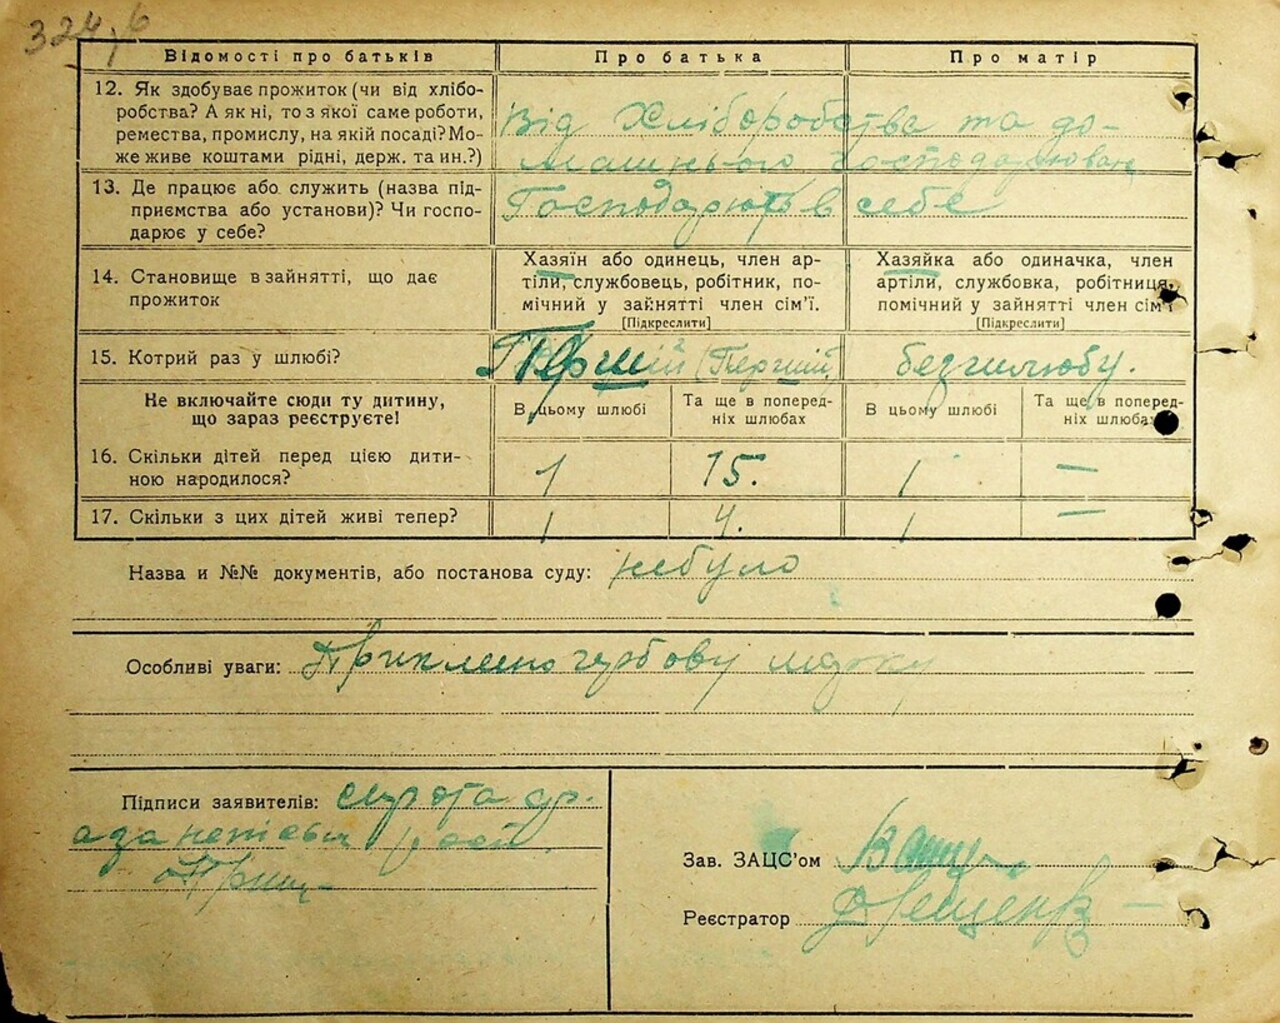 Відомості про батьків
Про батька
Про матір
12. Як здобуває прожиток (чи від хлібо-
робства? А як ні, то з якої саме роботи,
ремества, промислу, на якій посаді? Мо-
же живе коштами рідні, держ. та ин.?)
Від Хліборобства та до-
машнього господарювань
13. Де працює або служить (назва під-
приємства або установи)? Чи госпо-
дарює у себе?
Господарюють в себе
14. Становище в зайнятті, що дає
прожиток
Хазяїн або одинець, член ар-
тіли, службовець, робітник, по-
мічний у зайнятті член сім'ї.
[Підкреслити]
Хазяйка або одиначка, член
артіли, службовка, робітниця,
помічний у зайнятті член сім'ї
[Підкреслити]
15. Котрий раз у шлюбі?
Перший (Перший)
безшлюбу.
Не включайте сюди ту дитину,
що зараз реєструєте!
В цьому шлюбі
Та ще в поперед-
ніх шлюбах
В цьому шлюбі
Та ще в поперед-
ніх шлюбах
16. Скільки дітей перед цією дити-
ною народилося?
1
15.
1
—
17. Скільки з цих дітей живі тепер?
1
4.
1
—
Назва и №№ документів, або постанова суду: небуло
Особливі уваги: Приклеено гербову марку
Підписи заявителів: сирота
Зав. ЗАЦС'ом
Реєстратор